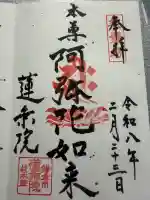 奉拝
令和八年
二月二十三日
本尊
阿弥陀如来
蓮乗院